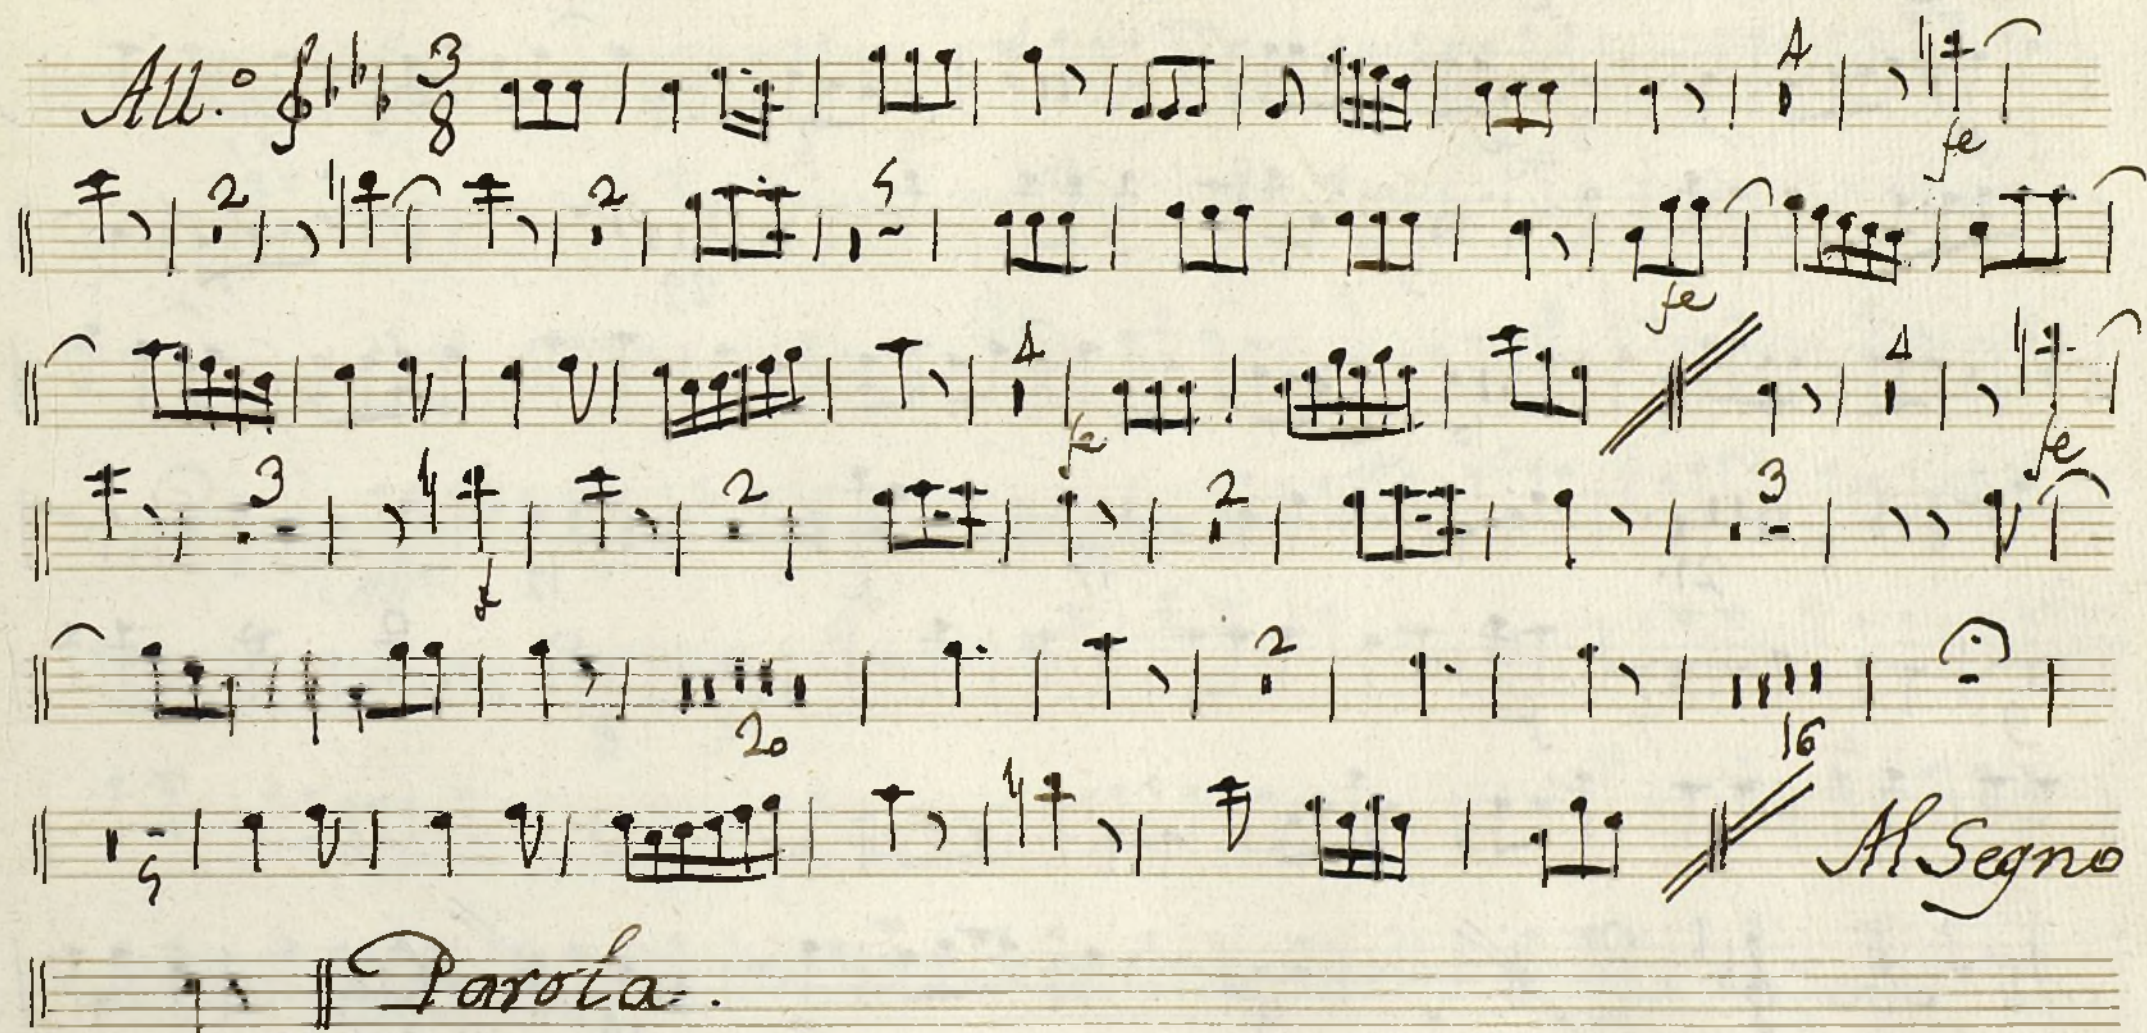 All.o 3 8 4 fe
2 2 5 fe
4 fe 4 fe
3 2 2 3 f
20 2 16
5 Al Segno
Parola.